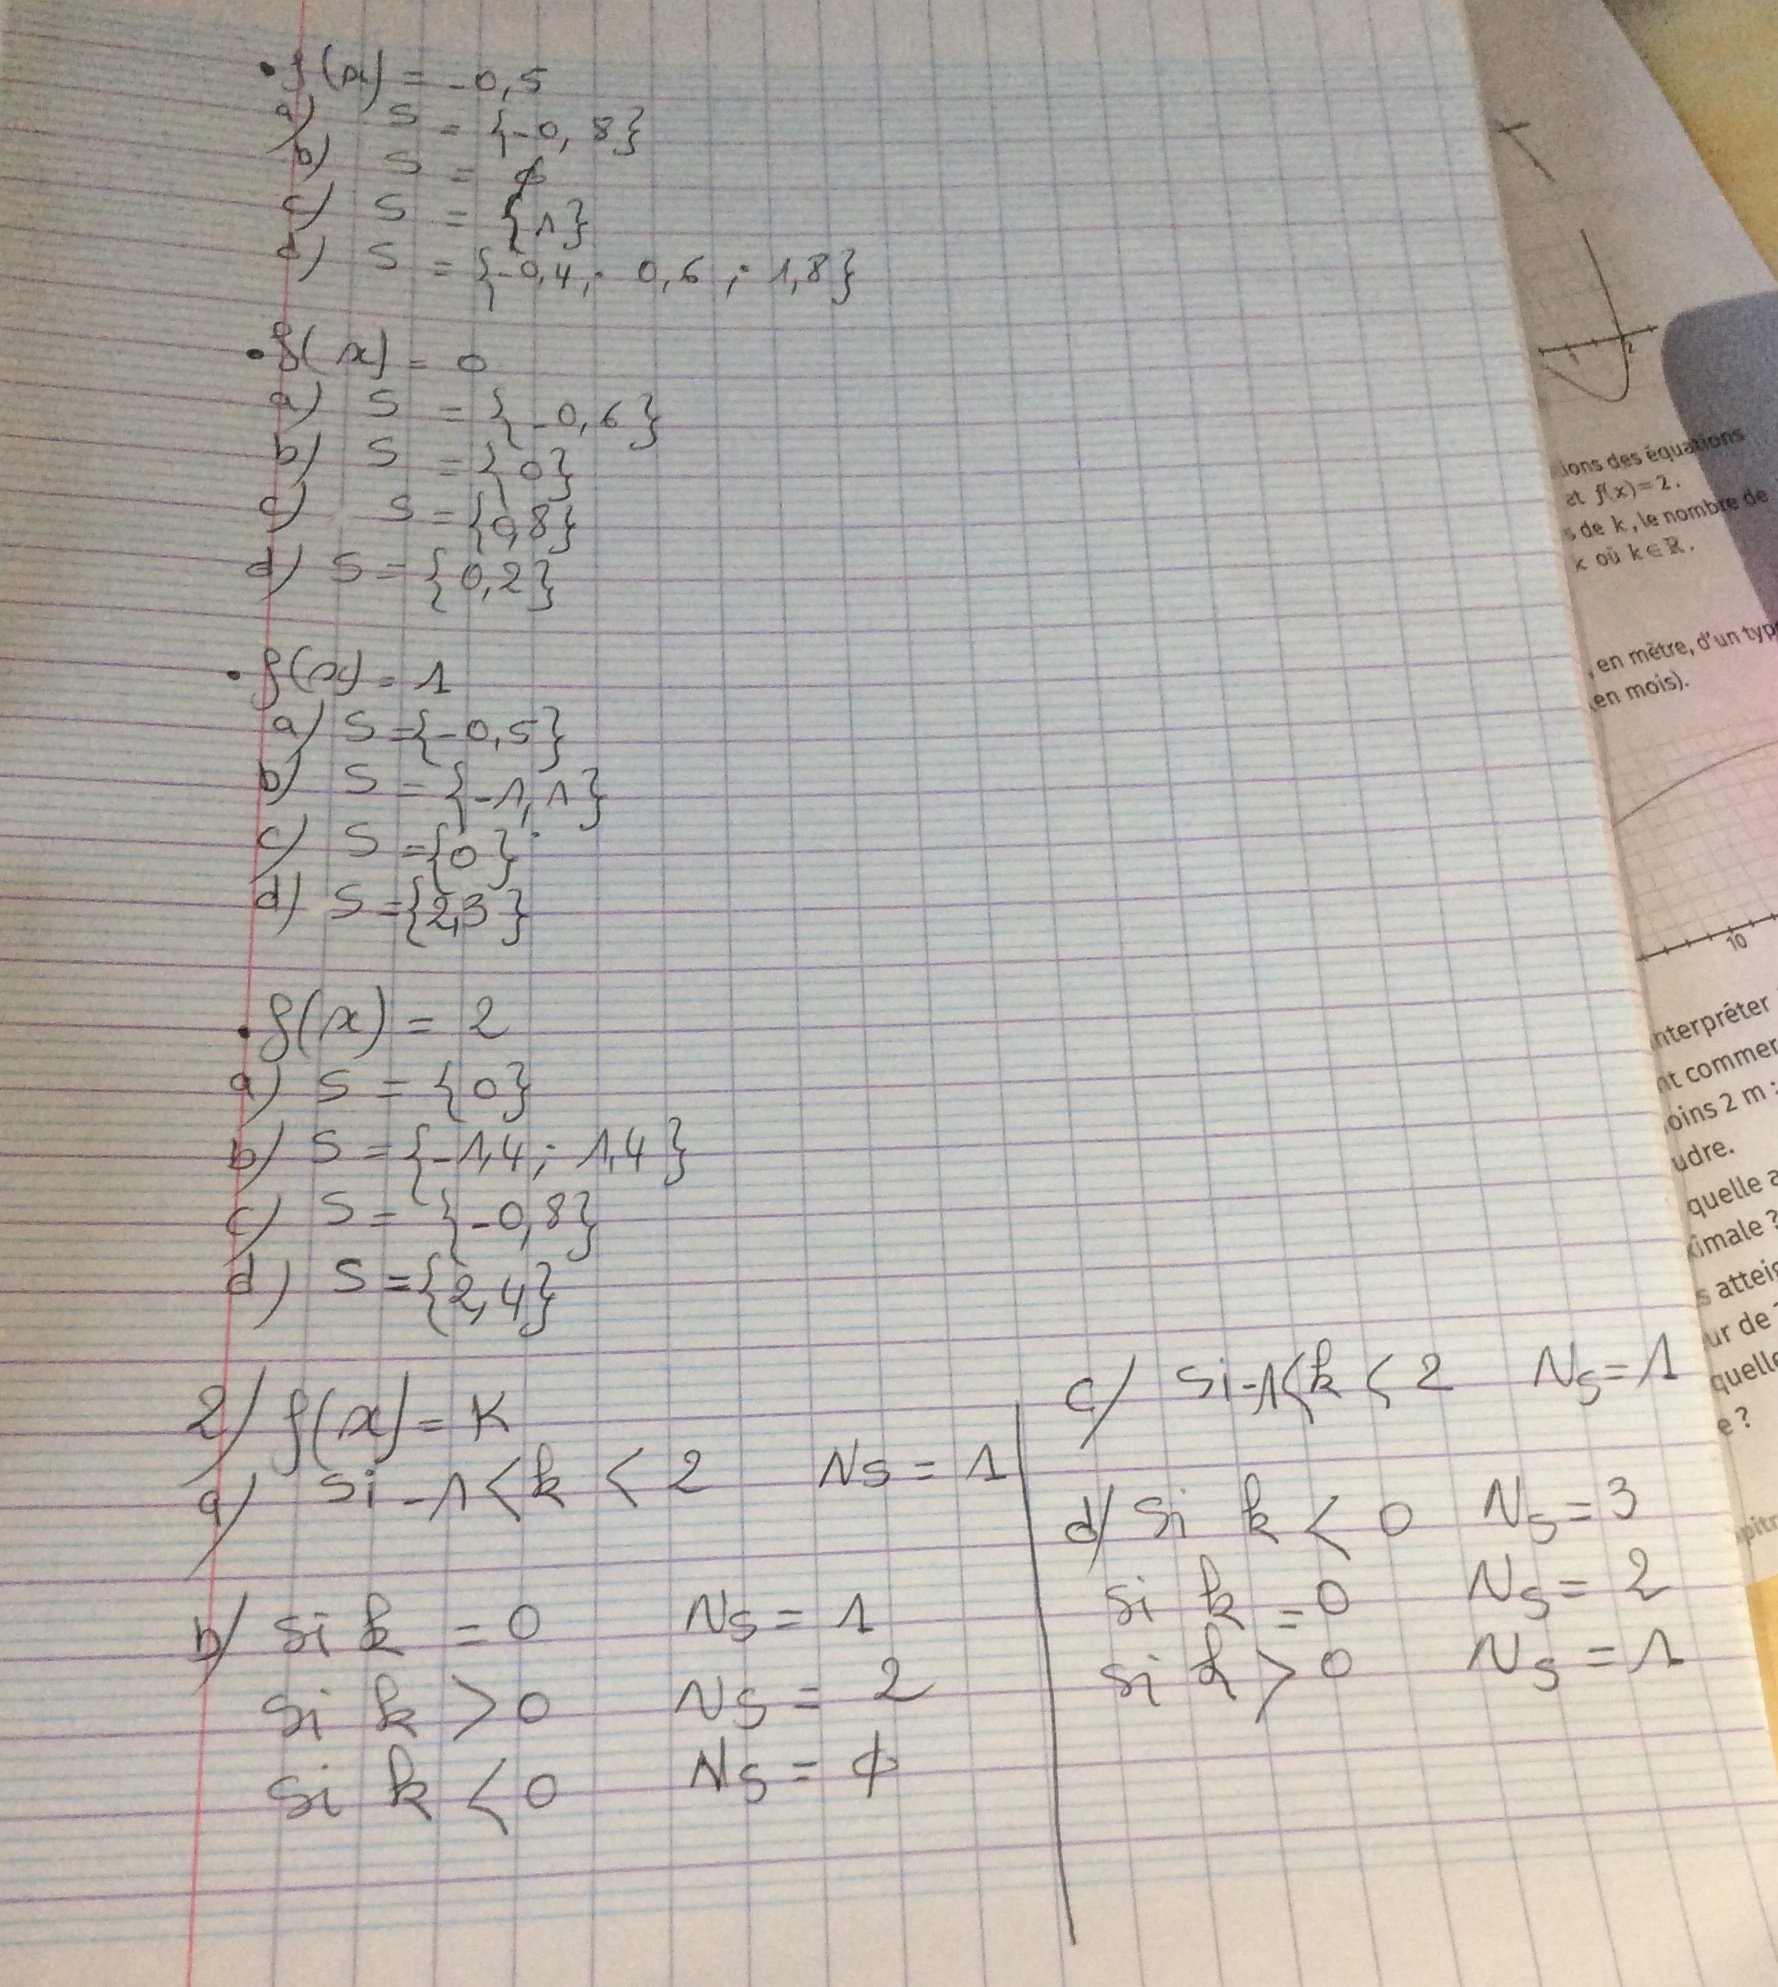 • f(x) = -0,5
a) S = {-0,8}
b) S = ∅
c) S = {1}
d) S = {-0,4 ; 0,6 ; 1,8}
• f(x) = 0
a) S = {-0,6}
b) S = {0}
c) S = {0,8}
d) S = {0,2}
• f(x) = 1
a) S = {-0,5}
b) S = {-1, 1}
c) S = {0}
d) S = {2,3}
• f(x) = 2
a) S = {0}
b) S = {-1,4 ; 1,4}
c) S = {-0,8}
d) S = {2,4}
2) f(x) = K
a) si -1 < k < 2 NS = 1
b) si k = 0 NS = 1
si k > 0 NS = 2
si k < 0 NS = ∅
c) si -1 < k < 2 NS = 1
d) si k < 0 NS = 3
si k = 0 NS = 2
si k > 0 NS = 1
2
ions des équations
et f(x)=2.
s de k, le nombre de
k où k∈ℝ.
, en mètre, d'un type
(en mois).
10
nterpréter
nt commer
oins 2 m :
udre.
quelle a
ximale ?
s atteig
ur de
quelle
e ?
pitr